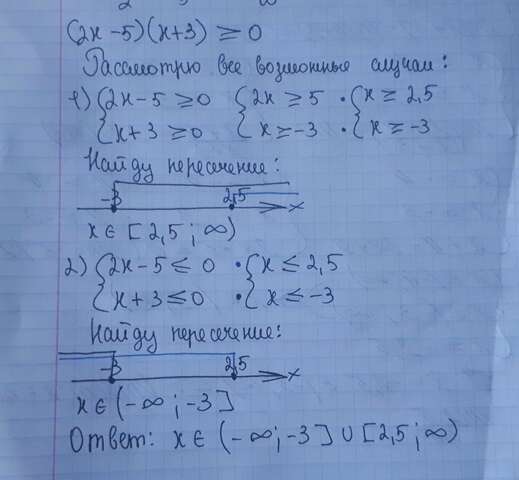 (2x-5)(x+3) ≥ 0
Рассмотрю все возможные случаи:
1) {2x-5 ≥ 0 {2x ≥ 5 • {x ≥ 2,5
{x+3 ≥ 0 {x ≥ -3 • {x ≥ -3
Найду пересечение:
-3 2,5 x
x ∈ [2,5; ∞)
2) {2x-5 ≤ 0 • {x ≤ 2,5
{x+3 ≤ 0 • {x ≤ -3
Найду пересечение:
-3 2,5 x
x ∈ (-∞; -3]
Ответ: x ∈ (-∞; -3] ∪ [2,5; ∞)